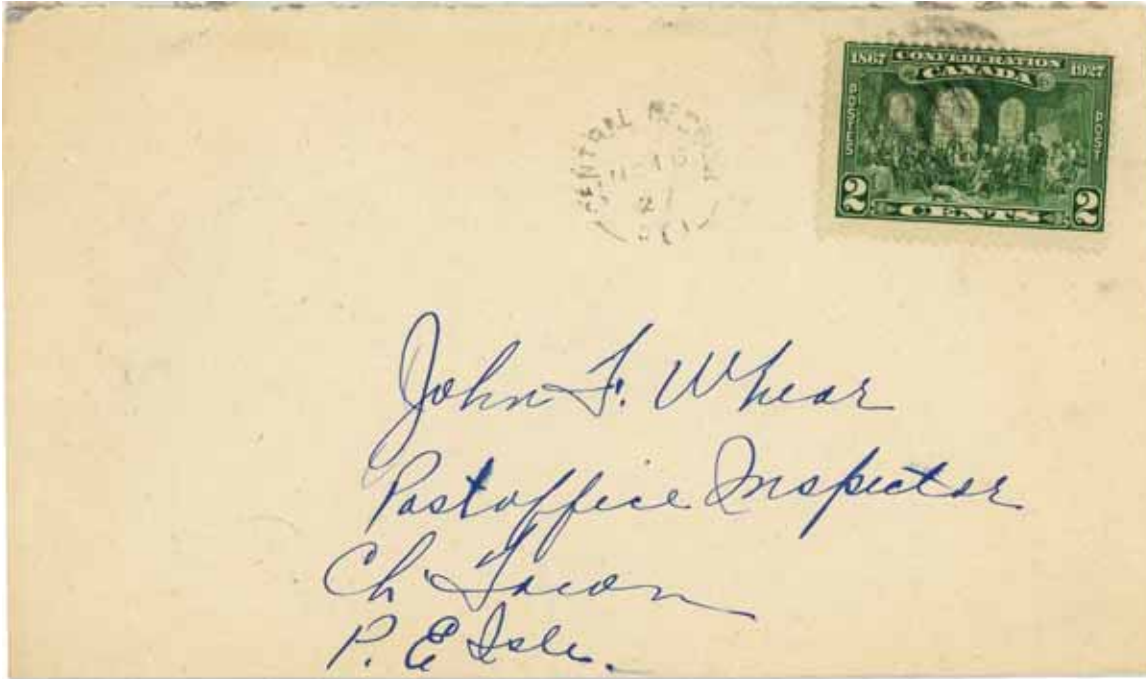 1867 CONFEDERATION 1927
CANADA
POSTES
POST
2 CENTS 2
CENTRAL
27
John F. Whear
Postoffice Inspector
Ch Town
P. E Isle.